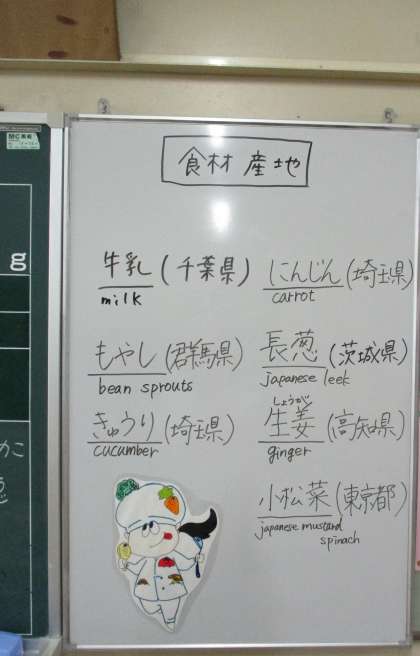 食材産地
牛乳(千葉県)
milk
にんじん(埼玉県)
carrot
もやし(群馬県)
bean sprouts
長葱(茨城県)
japanese leek
きゅうり(埼玉県)
cucumber
しょうが
生姜(高知県)
ginger
小松菜(東京都)
japanese mustard
spinach
g